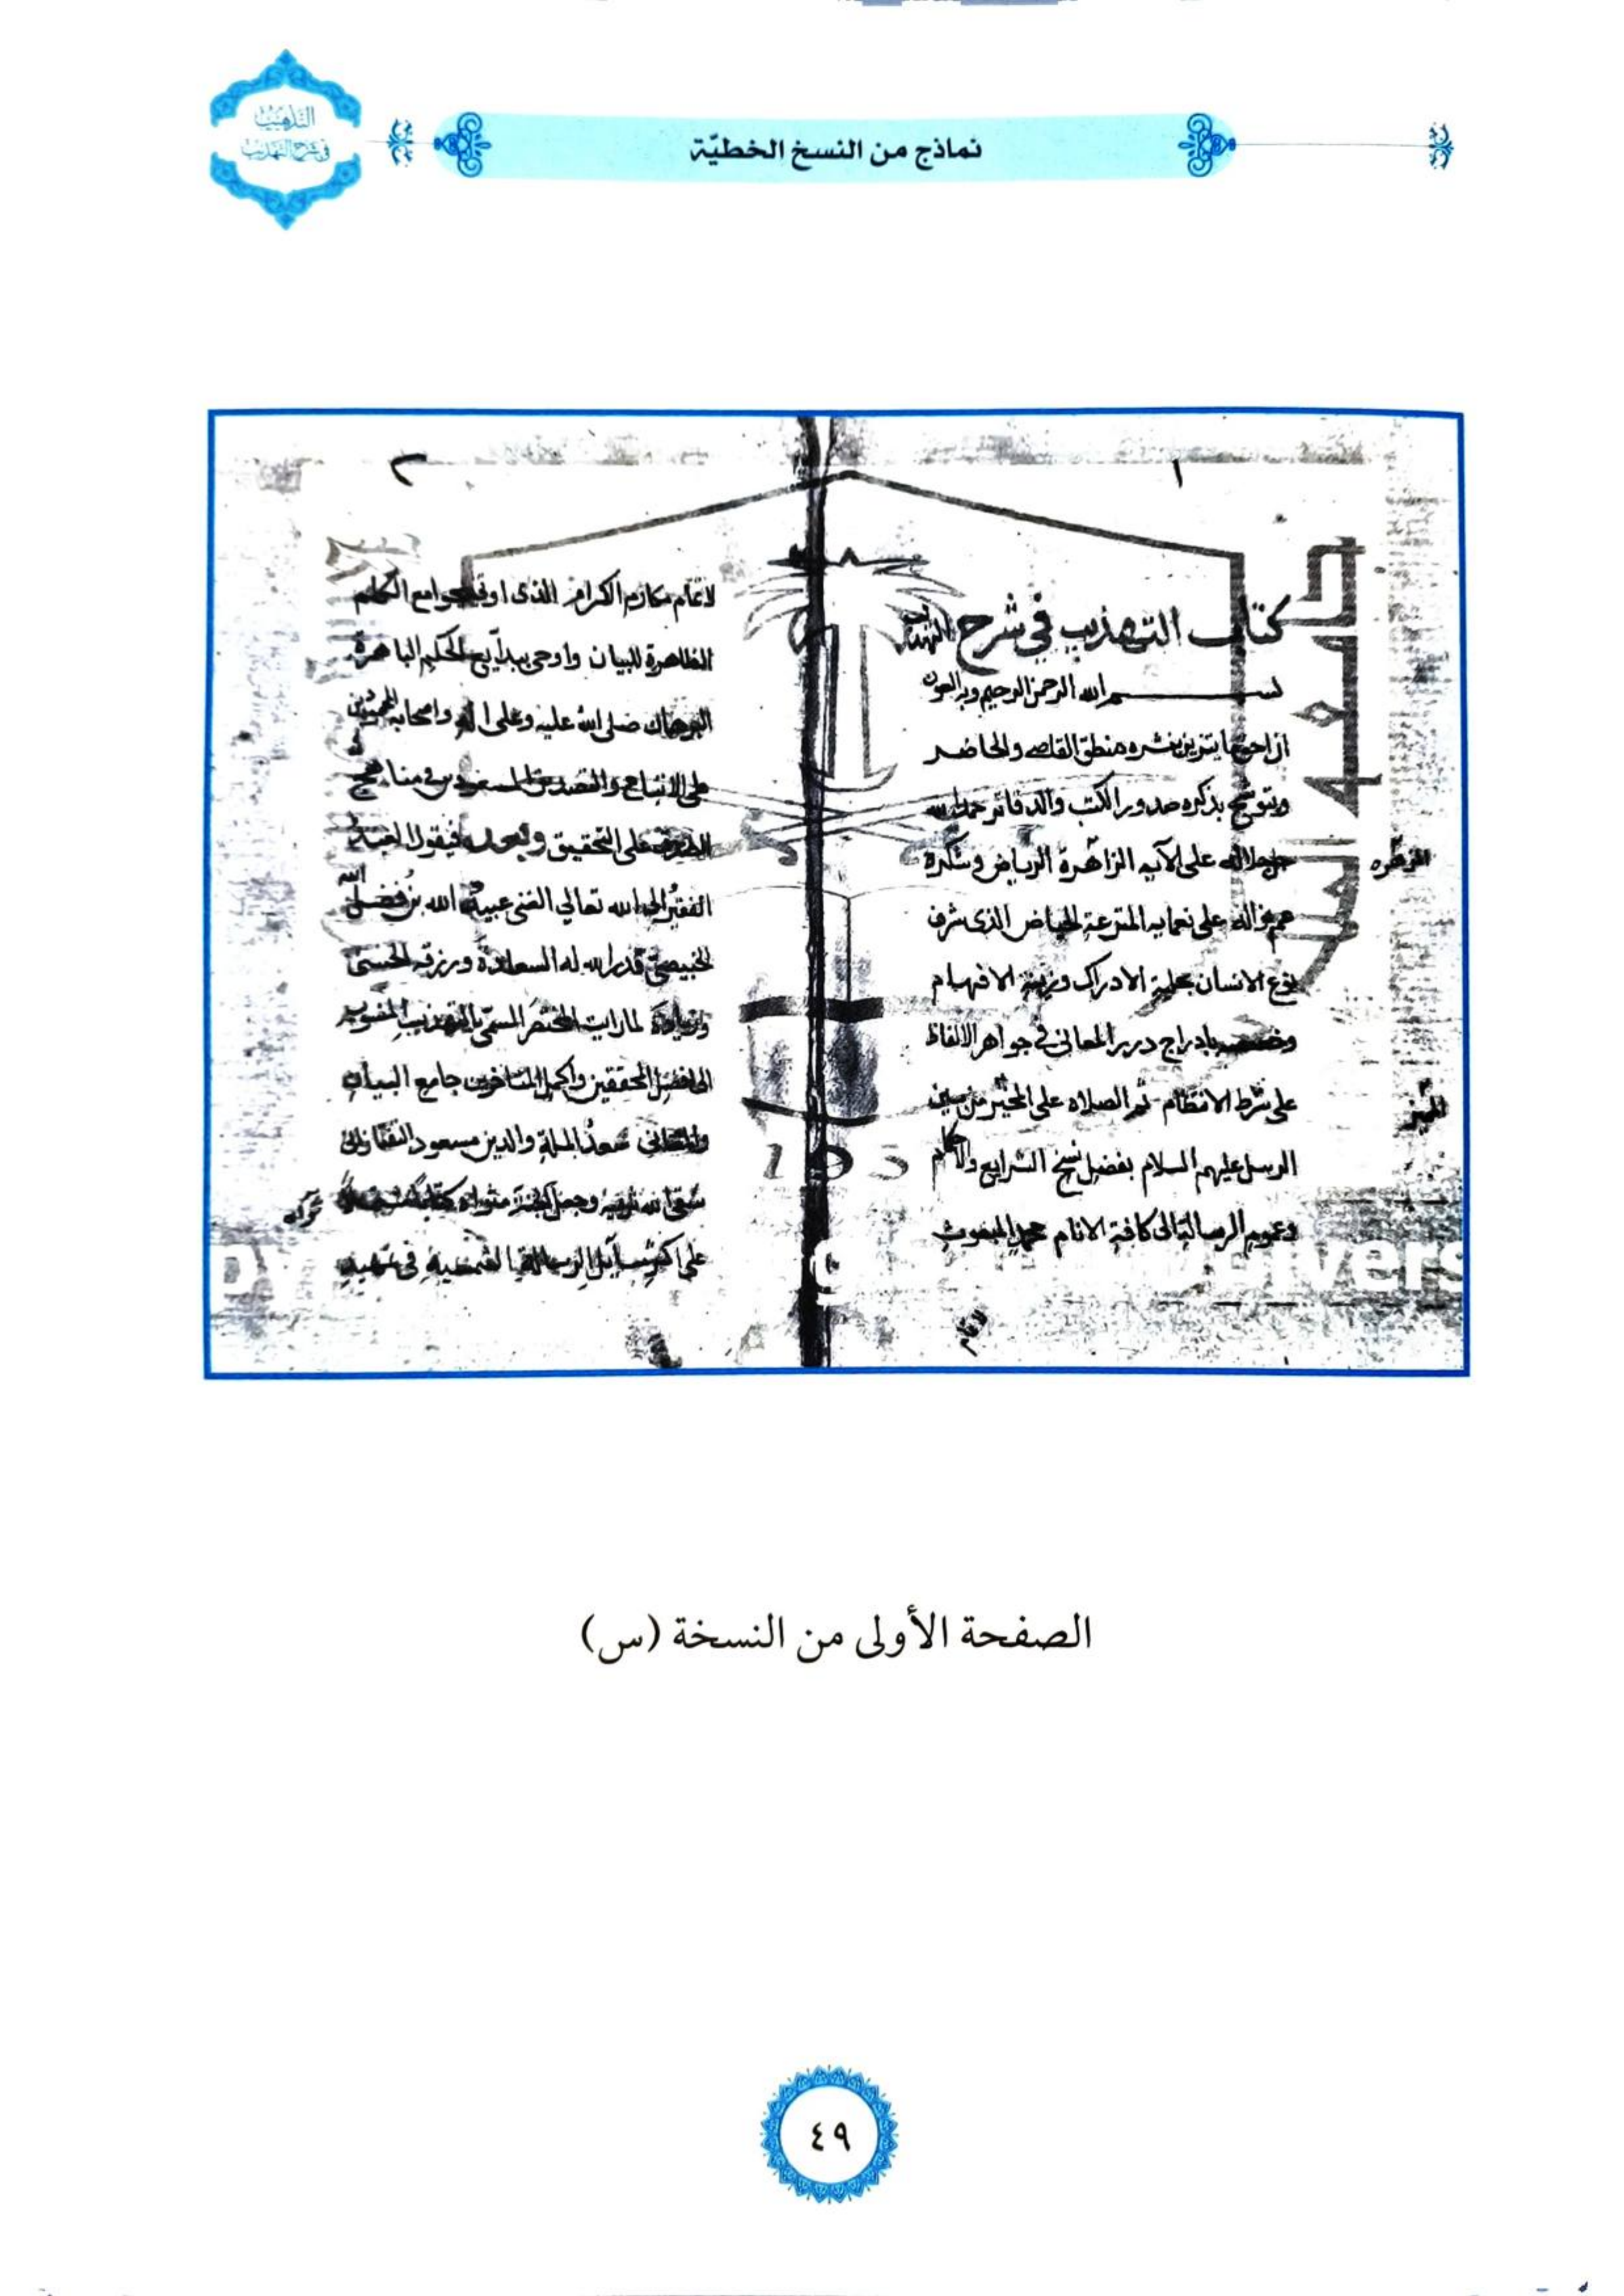 التذهيب
في شرح التهذيب
نماذج من النسخ الخطيّة
١
كتاب التهذيب في شرح التهذيب
بسم الله الرحمن الرحيم وبه العون
ان احق ما يتزين بنشره منطق القاصى والحاضر
ويتوشح بذكره صدور الكتب والدفاتر حمد الله
جل جلاله على الآيه الزاهرة الرياض وشكره
عم نواله على نعمايه المترعة الحياض الذى شرف
نوع الانسان بحلية الادراك وزينة الافهام
وخصصه بادراج درر المعانى في جواهر الالفاظ
على شرط الانتظام ثم الصلاه على المخبر من بين
الرسل عليهم السلام بفضل نسخ الشرايع والاحكام
وعموم الرسالة الى كافة الانام محمد المبعوث
لاتمام
٢
لاتمام مكارم الكرام الذى اوتى جوامع الكلم
الظاهرة للبيان واوحى ببدايع الحكم الباهرة
البرهان صلى الله عليه وعلى اله واصحابه
على الاتباع والتصديق فى مناهج
على التحقيق وبعد فيقول العبد
الفقير الى الله تعالي الغنى عبيد الله بن فضل الله
الخبيصي قدر الله له السعادة ورزقه الحسنى
وزيادة لما رايت المختصر المسمى بالتهذيب المنسوب
الى افضل المحققين واكمل المتاخرين جامع البيان
والمعانى سعد الملة والدين مسعود التفتازانى
سقى الله ثربه وجعل الجنة مثواه كتابا
على اكثر مسايل الرسالة الشمسية فى
الصفحة الأولى من النسخة (س)
٤٩